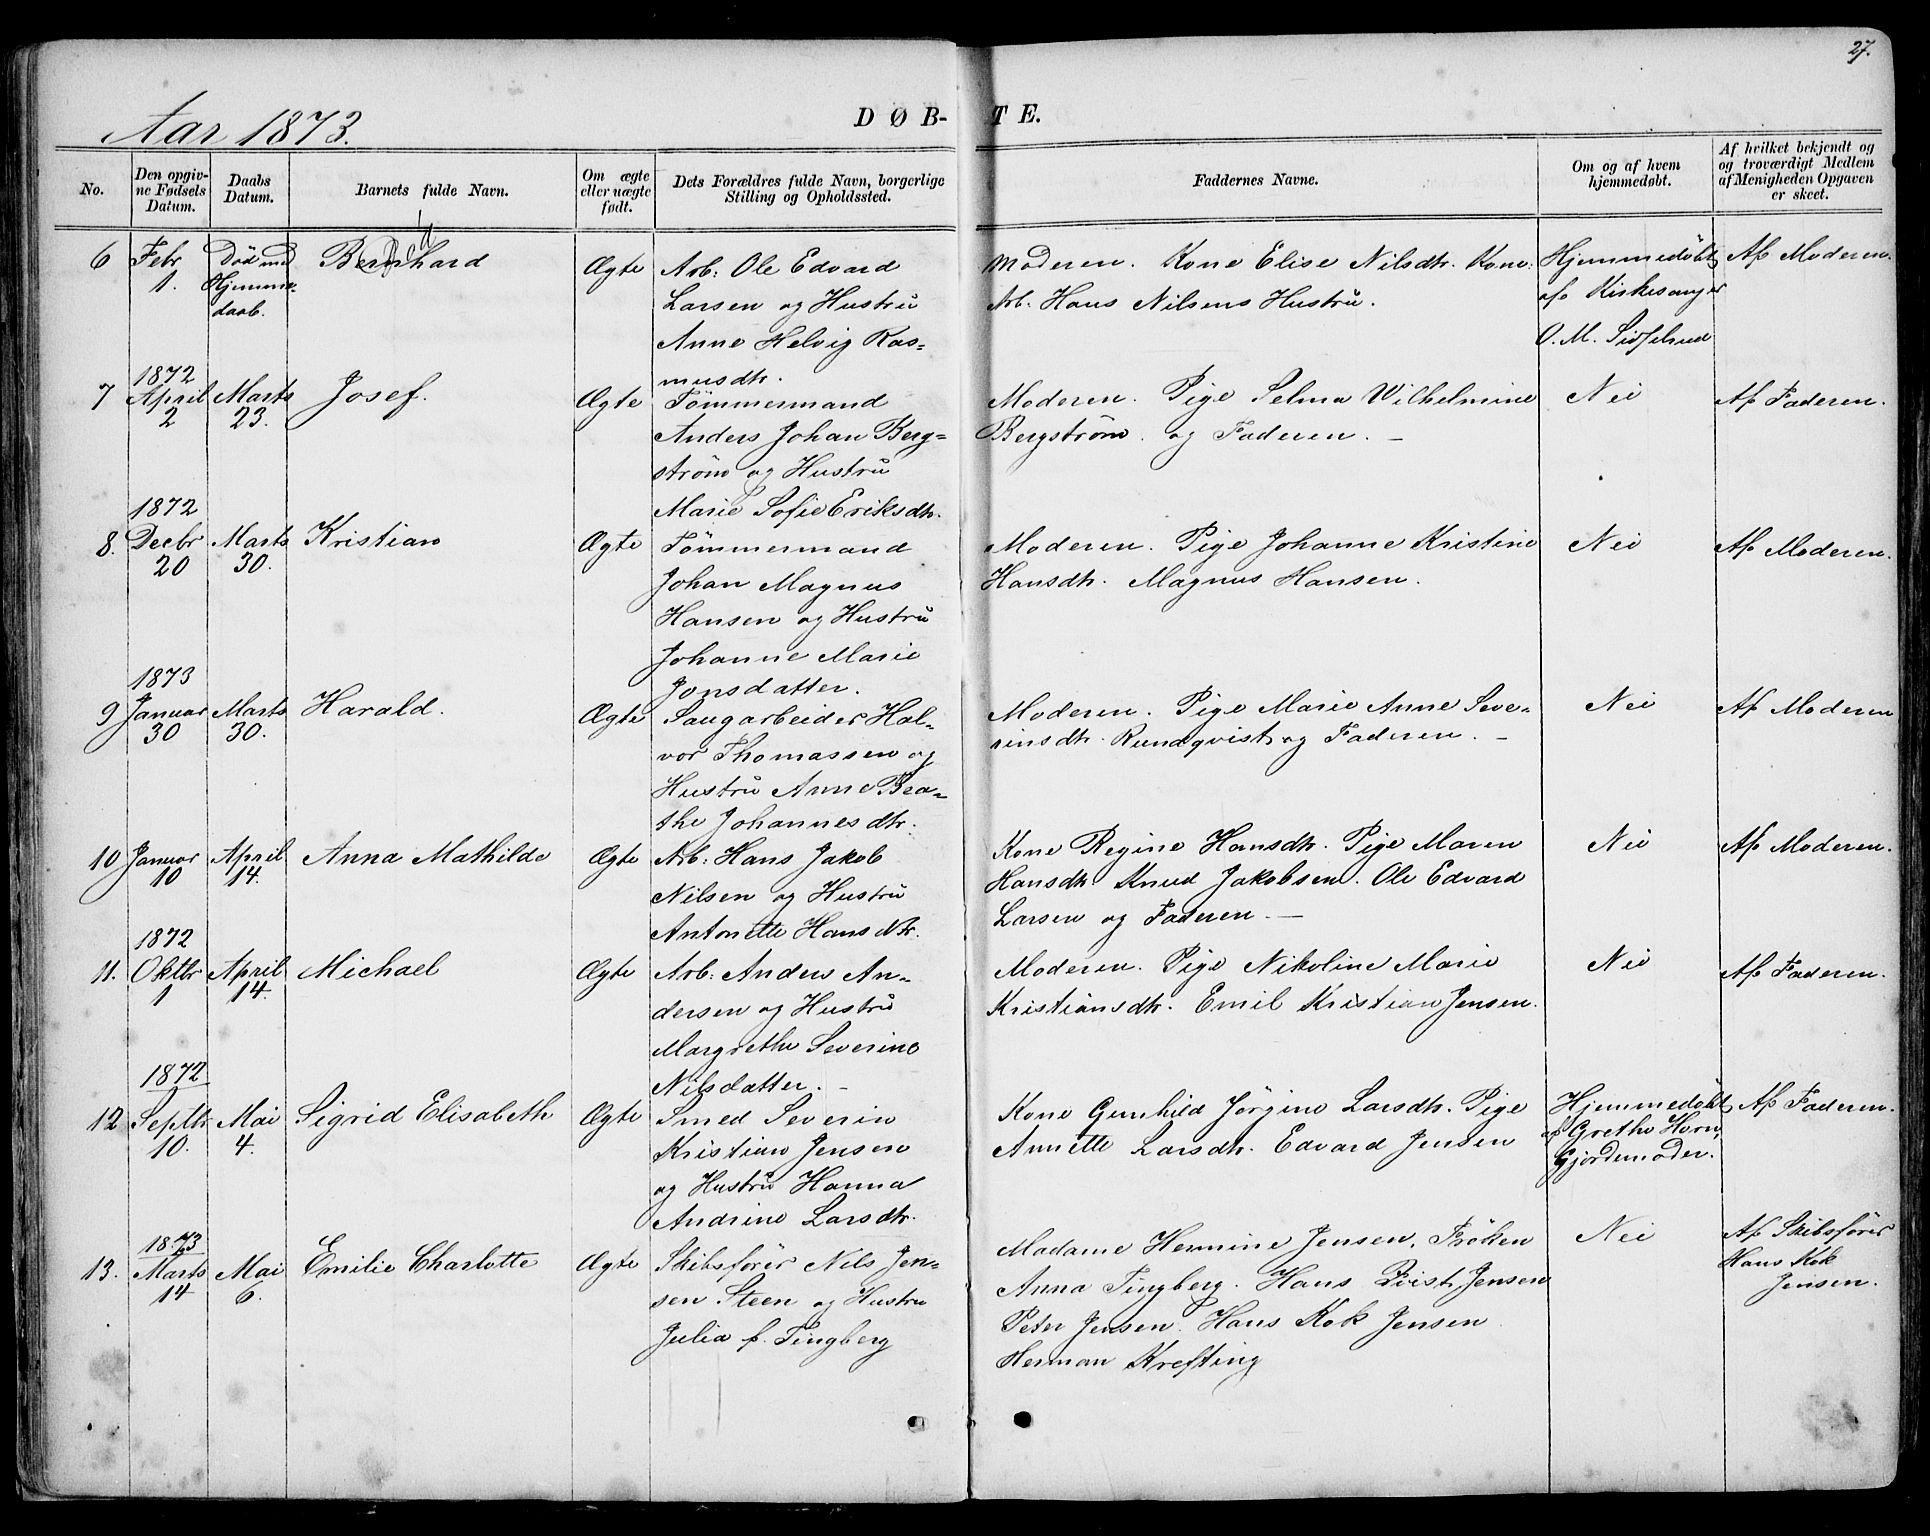 27.
Aar 1873.
DØB-TE.
No.
Den opgiv-
ne Fødsels
Datum.
Daabs
Datum.
Barnets fulde Navn.
Om ægte
eller uægte
født.
Dets Forældres fulde Navn, borgerlige
Stilling og Opholdssted.
Faddernes Navne.
Om og af hvem
hjemmedøbt.
Af hvilket bekjendt og
og troværdigt Medlem
af Menigheden Opgaven
er skeet.
6 Febr 1. Død med Hjemme- daab. Bernhard Ægte
Arb: Ole Edvard
Larsen og Hustru
Anne Helvig Ras-
musdtr.
Moderen. Kone Elise Nilsdtr. Kone:
Arb. Hans Nilsens Hustru.
Hjemmedøbt
af Kirkesanger
O. M.
Af Moderen.
7 1872 April 2 Marts 23. Josef. Ægte
Tømmermand
Anders Johan Berg-
strøm og Hustru
Marie Sofie Eriksdtr.
Moderen. Pige Selma Wilhelmine
Bergstrøm. og Faderen. –
Nei
Af Faderen.
8. 1872 Decbr 20 Marts 30. Kristian Ægte
Tømmermand
Johan Magnus
Hansen og Hustru
Johanne Marie
Jonsdatter.
Moderen. Pige Johanne Kristine
Hansdtr. Magnus Hansen.
Nei
Af Moderen.
9 1873 Januar 30 Marts 30. Harald. Ægte
Saugarbeider Hal-
vor Thomassen og
Hustru Anne Bea-
the Johannesdtr.
Moderen. Pige Marie Anne Seve-
rinsdtr. Rundqvist og Faderen. –
Nei
Af Moderen
10 Januar 10 April 14. Anna Mathilde Ægte
Arb: Hans Jakob
Nilsen og Hustru
Antonette Hansdtr.
Kone Regine Hansdtr. Pige Maren
Hansdtr. Knud Jakobsen. Ole Edvard
Larsen og Faderen. –
Nei
Af Moderen.
11. 1872 Oktbr 1 April 14. Michael Ægte
Arb: Anders An-
dersen og Hustru
Margrethe Severine
Nilsdatter. –
Moderen. Pige Nikoline Marie
Kristiansdtr. Emil Kristian Jensen.
Nei
Af Faderen.
12 1872 Septbr 10. Mai 4. Sigrid Elisabeth Ægte
Smed Severin
Kristian Jensen
og Hustru Hanna
Andrine Larsdtr.
Kone Gunhild Jørgine Larsdtr. Pige
Annette Larsdtr. Edvard Jensen
Hjemmedøbt
af Grethe Horn,
Gjordemoder.
Af Faderen.
13. 1873 Marts 14 Mai 6. Emilie Charlotte Ægte
Skibsfører Nils Jen-
sen Steen og Hustru
Julia f. Tingberg
Madame Hermine Jensen, Frøken
Anna Tingberg. Hans Jensen
Peter Jensen. Hans Kok Jensen
Herman Krefting
Nei
Af Skibsfører
Hans Kok
Jensen.